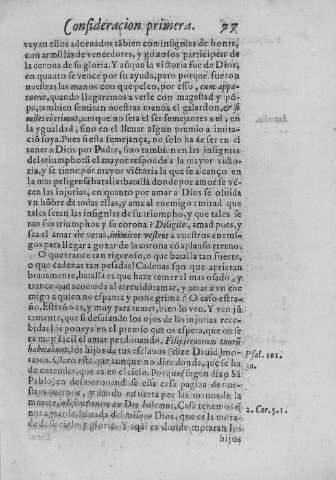 Consideracion primera. 77
vayan ellos adornados tãbien con insignias de honra,
con armillas de vencedores, y gozosos participen de
la corona de su gloria. Y aũque la victoria fue de Dios,
en quanto se vence por su ayuda, pero porque fueron
nuestras las manos con que peleo, por esso, cum appa-
ruerit, quando llegaremos a verle con magestad y põ-
pa, tambien seran nuestro el galardon, & si
miles ei erimus, aunque no sera el ser semejantes a el, en
la ygualdad, sino en el llevar algun premio a imita-
ciõ suya. Pues si esta semejança, no solo ha de ser en el
tener a Dios por Padre, sino tambien en las insignias
del triumpho: si el mayor responde a la mayor victo-
ria, y se tiene por mayor victoria la que se alcançò en
la mas peligrosa batalla: batalla donde por amor se vẽ-
cen las injurias, en quanto por amar a Dios se olvida
vn hõbre de todas ellas, y ama al enemigo: mirad que
tales seran las insignias de su triumpho, y que tales se
ran sus triumphos y su corona? Diligite, amad pues, y
sea el amar de veras, inimicos vestros a vuestros enemi-
gos para llegar a gozar de la corona cõ aplauso eterno.
O que trance tan riguroso, o que batalla tan fuerte,
o que cadenas tan pesadas! Cadenas son que aprietan
bravamente, batalla es que haze temer al mas osado, y
trance que acobarda al atrevido: amar, y amar a vn ene
migo a quien no espanta y pone grima? O caso estra-
ño. Estraño es, y muy para temer, bien lo veo. Y veo jũ-
tamente, que si desviando los ojos de las injurias rece-
bidas los poneys en el premio que os espera, que os se
ra muy facil el amar perdonando. Filij servorum tuorũ
habitabunt, los hijos de tus esclavos (dize David) mo-
raran. Claro esta, que aunque no dize donde, que se ha
de entender, que es en el cielo. Porque (segun dixo Sã
Pablo) en desmoronandose esta casa pagiza de nue-
stros cuerpos, y dando en tierra por las manos de la
muerte, ædificationem ex Deo habemus, Casa tenemos q̃
nos aguarda, labrada del mismo Dios, que es la mora-
da de su cielo, y gloria. Y aqui es donde moraran los
hijos
Psal. 101.
30.
2. Cor. 5. 1.